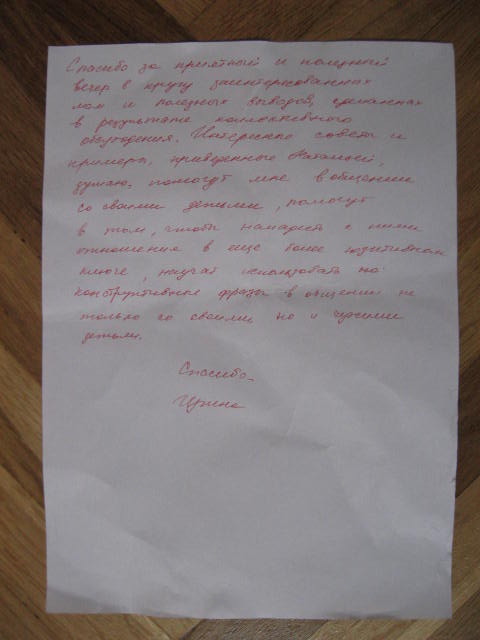 Спасибо за приятный и полезный
вечер в кругу заинтересованных
мам и полезных выводов, сделанных
в результате коллективного
обсуждения. Интересные советы и
примеры, приведенные Натальей,
думаю, помогут мне в общении
со своими детьми, помогут
в том, чтобы наладить с ними
отношения в еще более позитивном
ключе, научат использовать
конструктивные фразы в общении не
только со своими но и чужими
детьми.
Спасибо.
Ирина